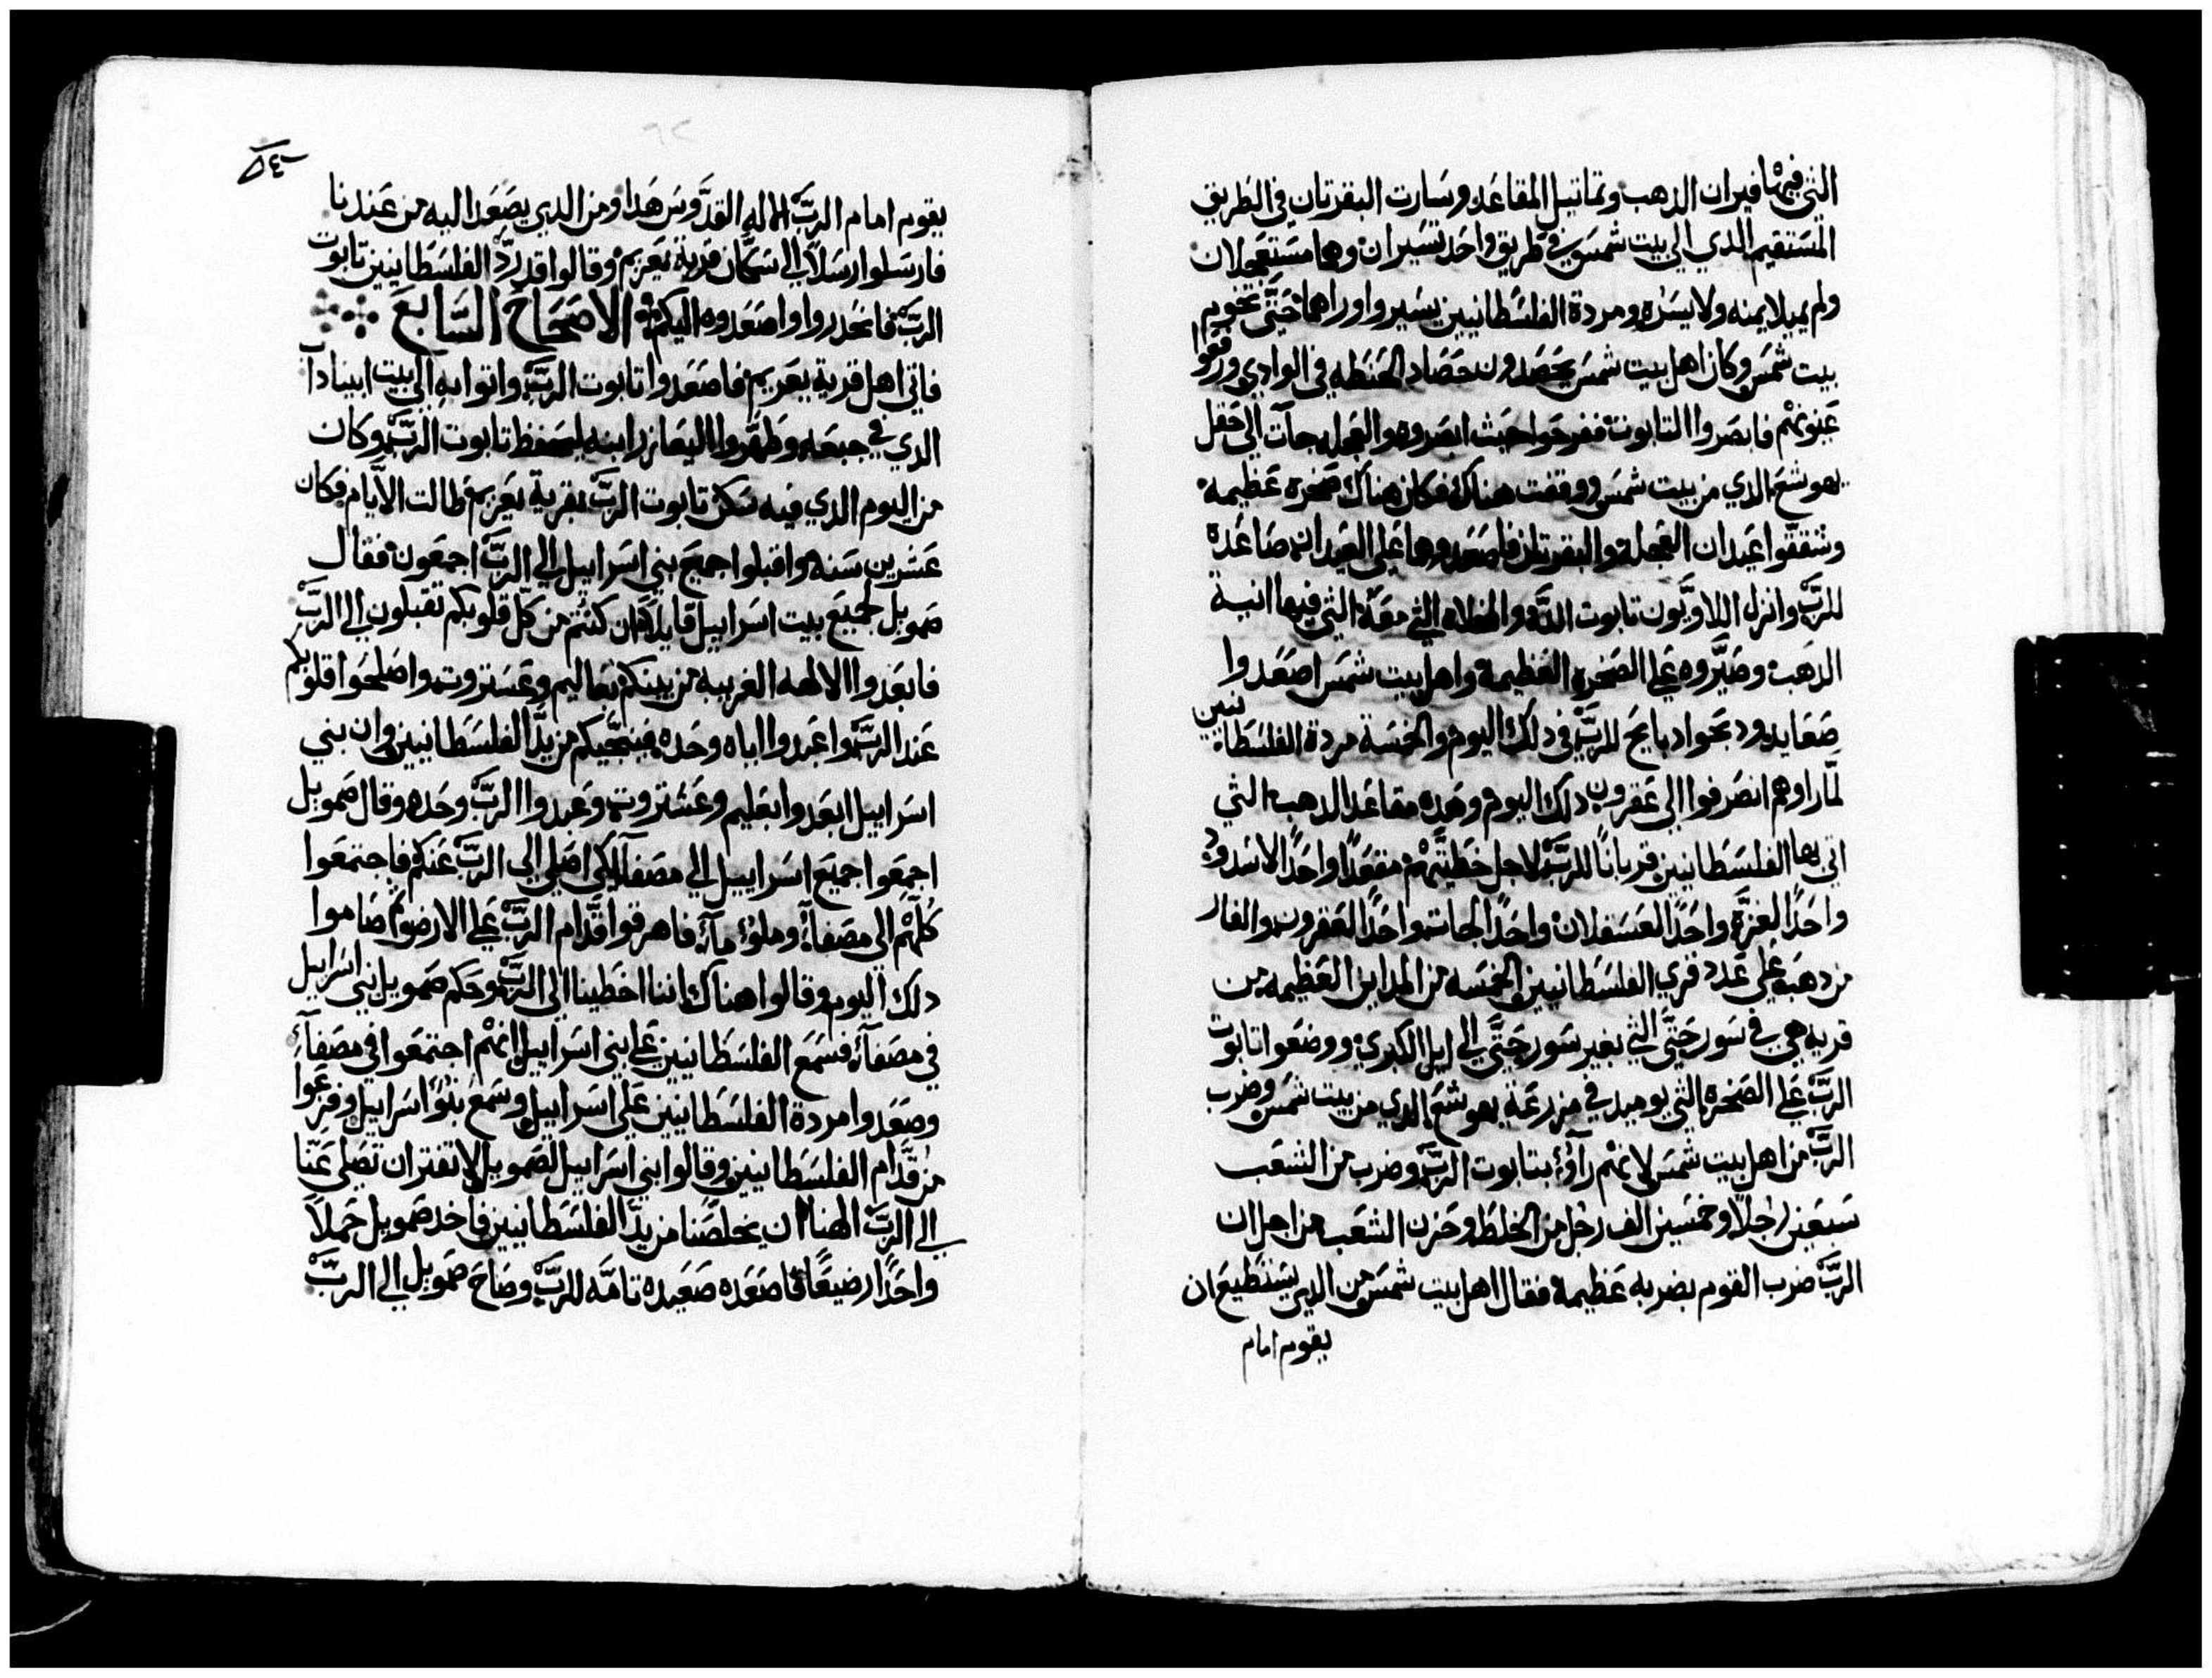 التي فيها فيران الدهب وتماتيل المقاعد وسارت البقرتان في الطريق
المستقيم الدي الي بيت شمس في طريق واحد تسيران وهما مستعجلان
ولم يميلا يمنه ولا يسره ومردة الفلسطانيين يسيروا وراهما حتي تخوم
بيت شمس وكان اهل بيت شمس يحصدون حصاد الحنطه في الوادي ورفعوا
عينونهم فابصروا التابوت ففرحوا حيث ابصروه والعجله جات الي حقل
يهوشع الدي من بيت شمس ووقفت هناك فكان هناك صخره عظيمه
وشققوا عيدان العجله والبقرتان فاصعدوهما علي العيدان صاعدة
للرب وانزل اللاويون تابوت الله والمخلاه التي معه التي فيها انية
الدهب وصيروه علي الصخره العظيمه واهل بيت شمس اصعدوا
صعايد ودبحوا دبايح للرب في دلك اليوم والخمسة مردة الفلسطانيين
لما راوهم انصرفوا الي عقرون دلك اليوم وهده مقاعد الدهب التي
اتي بها الفلسطانيين قربانًا للرب لاجل خطيتهم مقعدًا واحدًا لاسدود
واحدًا لغزة واحدًا لعسقلان واحدًا لجات واحدًا لعقرون والفار
من دهب علي عدد قري الفلسطانيين الخمسه من المداين العظيمه من
قريه هي في سور حتي التي بغير سور حتي الي ابل الكبري ووضعوا تابوت
الرب علي الصخره التي يوميد في مزرعة يهوشع الدي من بيت شمس وضرب
الرب من اهل بيت شمس لانهم رآؤا بتابوت الرب وضرب من الشعب
سبعين رجلاً وخمسين الف رجل من الخلط وحزن الشعب من اجل ان
الرب ضرب القوم بضربه عظيمة فقال اهل بيت شمس من الدي يستطيع ان
يقوم امام
يقوم امام الرب الاله القدوس هدا ومن الدي يصعد اليه من عندنا
فارسلوا رسلاً الي سكان قرية يعريم وقالوا قد رد الفلسطانيين تابوت
الرب فانحدروا واصعدوه اليكم الاصحاح السابع
فاتي اهل قرية يعريم فاصعدوا تابوت الرب واتوا به الي بيت ابيناداب
الدي في جبعه وطهروا اليعازر ابنه ليحفظ تابوت الرب وكان
من اليوم الدي فيه سكن تابوت الرب بقرية يعريم طالت الايام فكان
عشرين سنه واقبلوا جميع بني اسراييل الي الرب اجمعون فقال
صمويل لجميع بيت اسراييل قايلاً ان كنتم من كل قلوبكم تقبلون الي الرب
فابعدوا الالهه الغريبه من بينكم بعاليم وعستروت واصلحوا قلوبكم
عند الرب واعبدوا اياه وحده فينجيكم من يد الفلسطانيين وان بني
اسراييل ابعدوا بعليم وعشتروت وعبدوا الرب وحده وقال صمويل
اجمعوا جميع اسراييل الي مصفآ لكي اصلي الي الرب عنكم فاجتمعوا
كلهم الي مصفآه وملوا مآه فاهرقوا قدام الرب علي الارض وصاموا
دلك اليوم وقالوا هناك اننا اخطينا الي الرب وحكم صمويل بني اسراييل
في مصفآه فسمع الفلسطانيين علي بني اسراييل انهم اجتمعوا في مصفآه
وصعدوا مردة الفلسطانيين علي اسراييل وسمع بنوا اسراييل وفزعوا
من قدام الفلسطانيين وقالوا بني اسراييل لصمويل لا تفتر ان تصلي عنا
الي الرب الهنا ان يخلصنا من يد الفلسطانيين فاخد صمويل حملاً
واحدًا رضيعًا فاصعده صعيده تامه للرب وصاح صمويل الي الرب